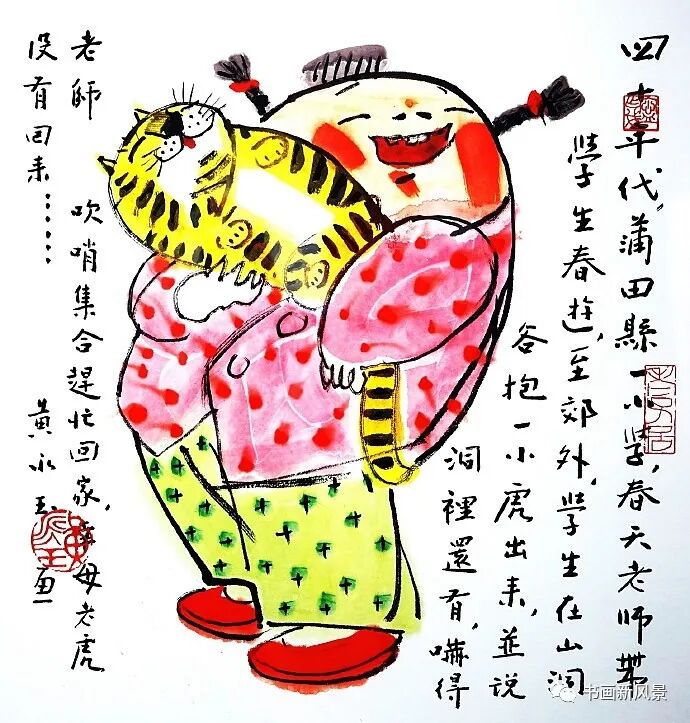 四十年代,蒲田縣一小學,春天老师帶
學生春遊,至郊外,學生在山洞
谷抱一小虎出来,並说
洞裡還有,嚇得
老師
吹哨集合趕忙回家,幸母老虎
没有回来……
黄永玉画
书画新风景